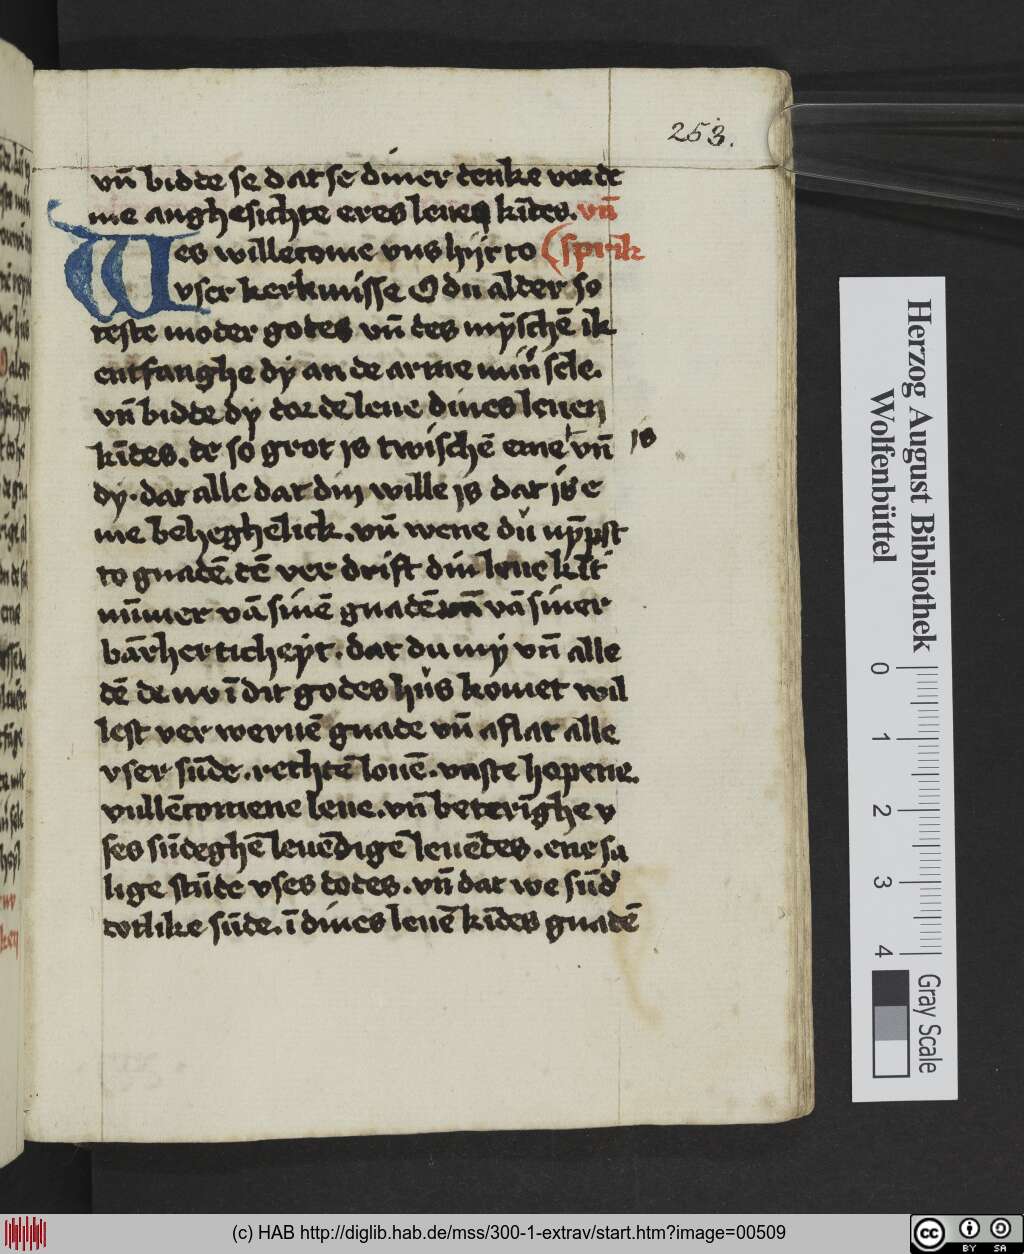 253.
vn̄ bidde se dat se diner denke vor de
me anghesichte eres leues kīdes. vn̄
Wes willekome vns hijr to (sprik
vser kerkmisse O du alder so
teste moder godes vn̄ des mȳschē ik
entfanghe dy an de arme miner sele.
vn̄ bidde dy dor de leue dines leuen
kīdes. de so grot is twischē eme vn̄ is
dy. dat alle dat din wille is dat is e
me beheghelick. vn̄ wene du nȳpst
to gnadē. dē ver drift din leue kīt
nūmer vā sinē gnadē vā siner
bārherticheyt. dat du my vn̄ alle
dē de nv ī dit godes hus komet wil
lest ver weruē gnade vn̄ aflat alle
vser sūde. rechtē louē. vaste hopene.
vullēkomene leue. vn̄ beterīghe v
ses sūdeghē leuēdigē leuēdes. ene sa
lige stūde vses dodes. vn̄ dat we sūd'
dotlike sūde. ī dines leuē kīdes gnadē
Herzog August Bibliothek
Wolfenbüttel
0 1 2 3 4
Gray Scale
(c) HAB http://diglib.hab.de/mss/300-1-extrav/start.htm?image=00509
cc BY SA